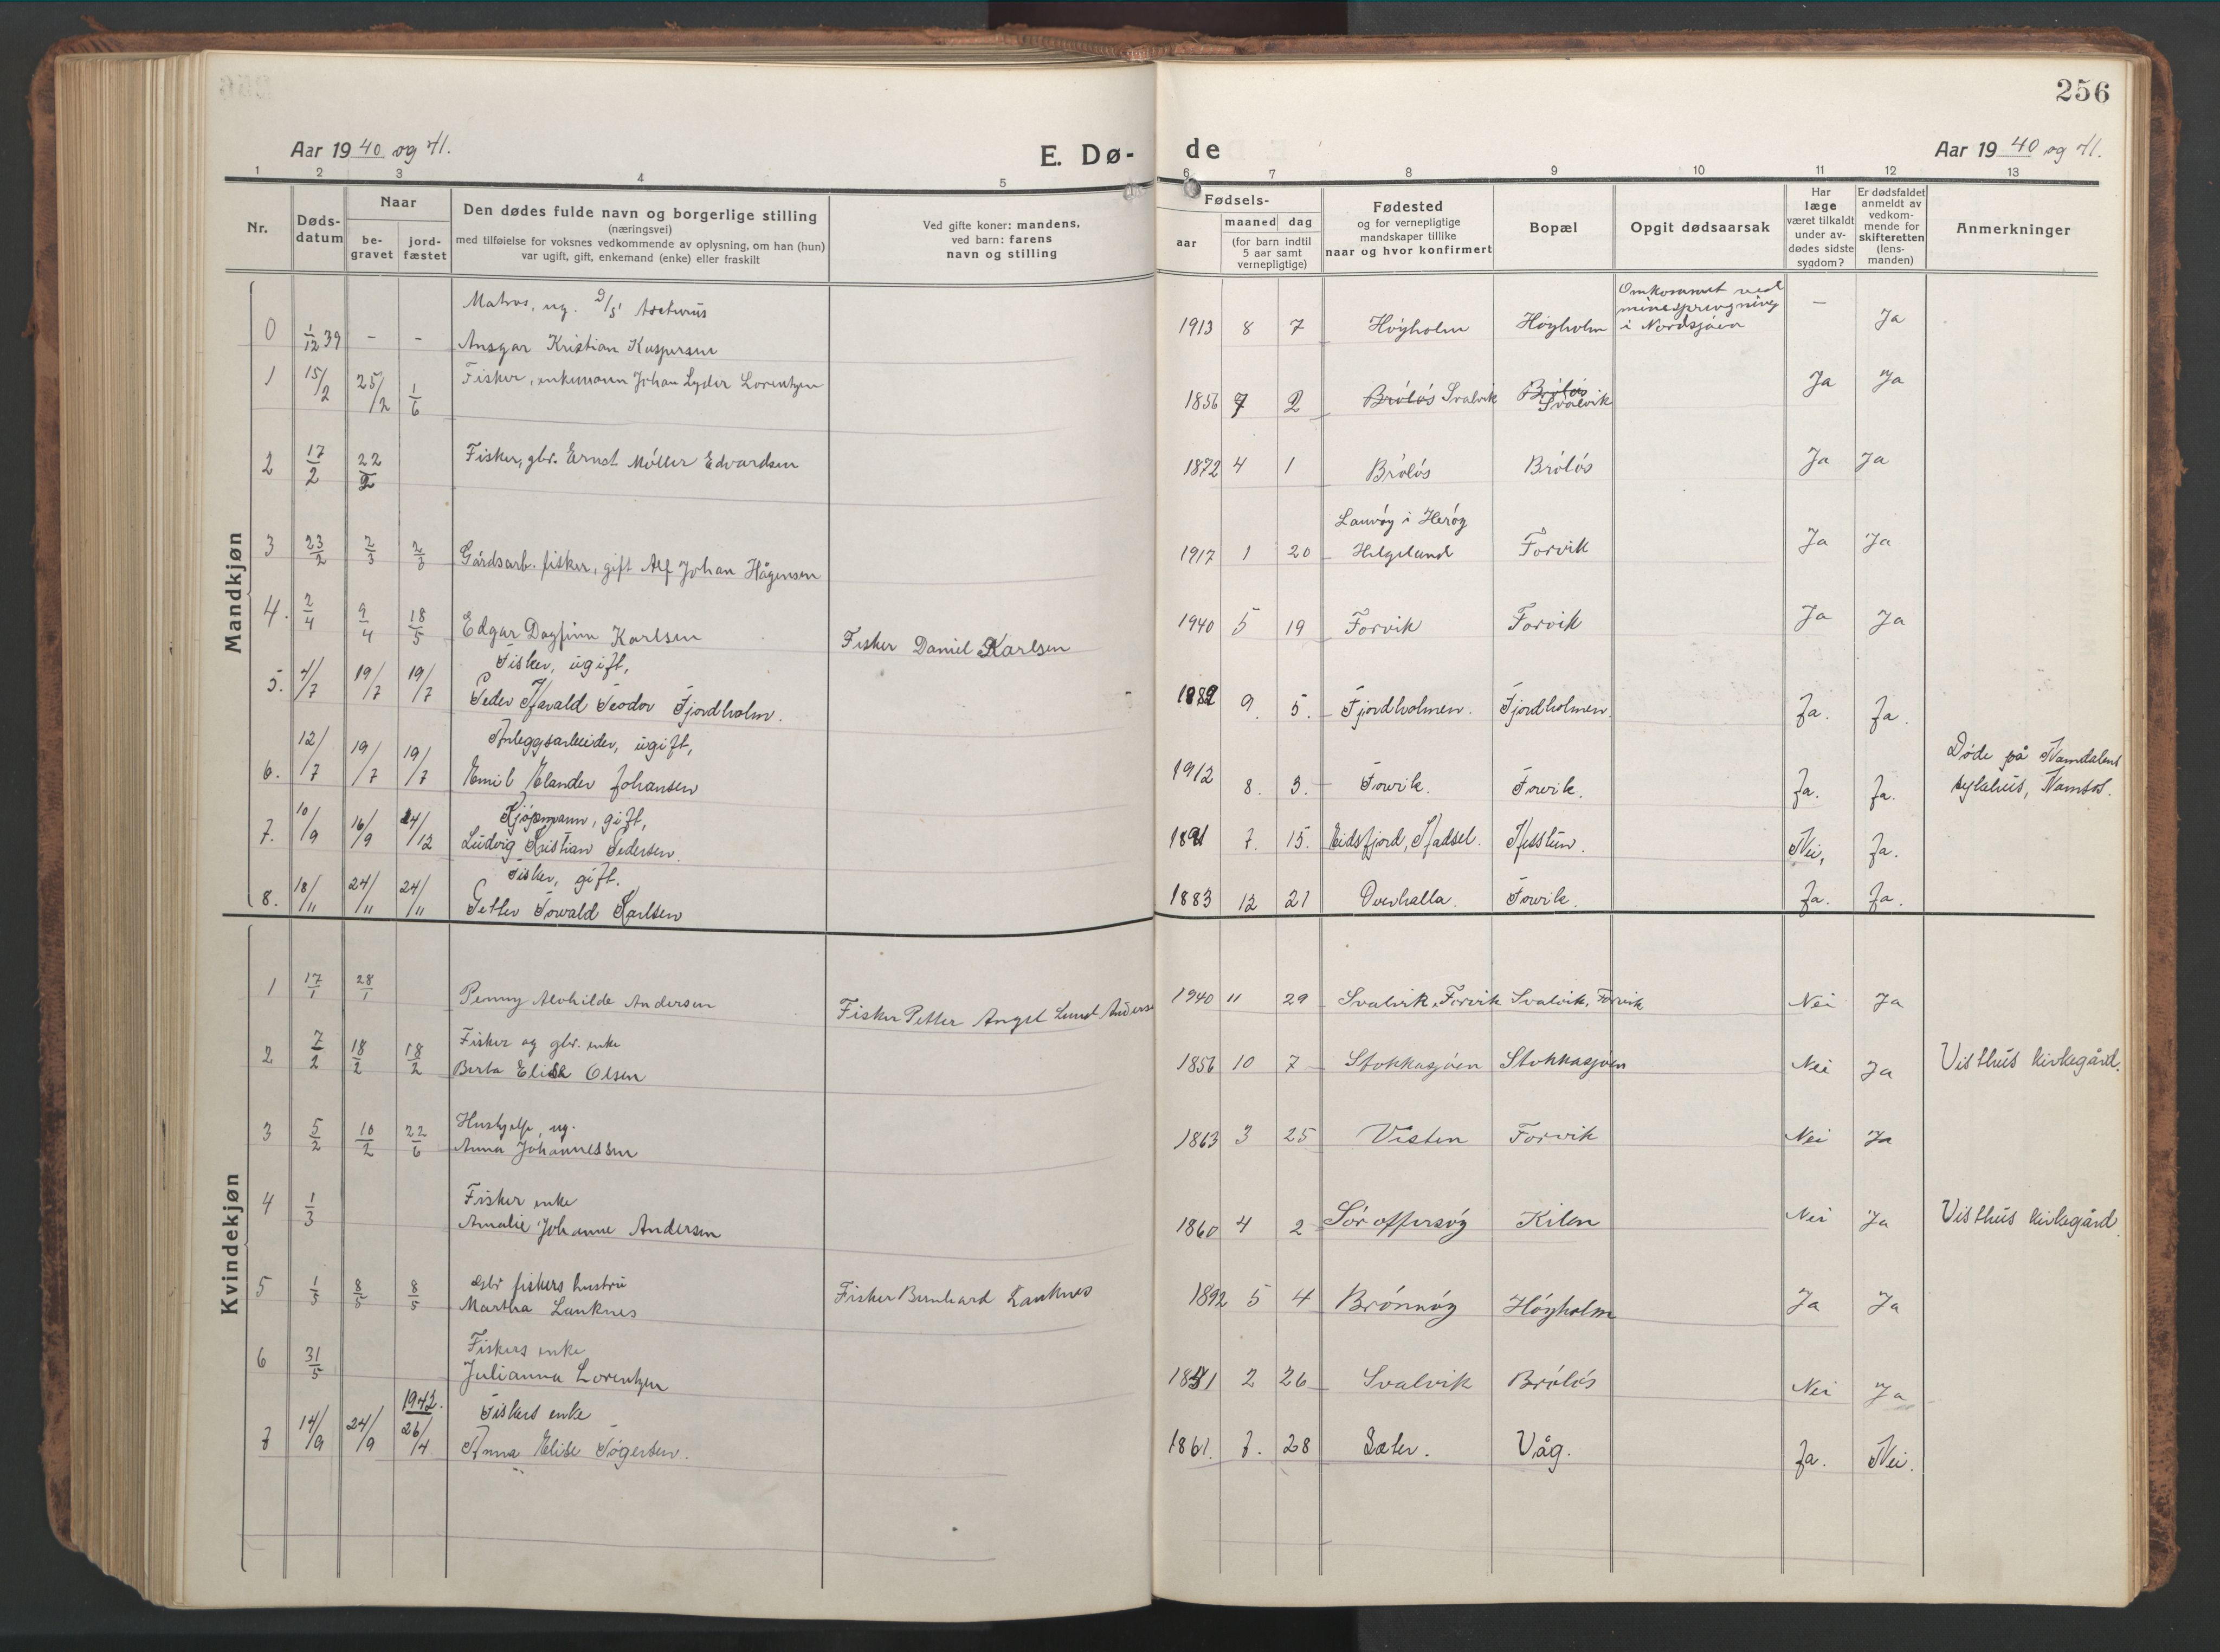 256
Aar 1940 og 41.
E. Dø-
de
Aar 1940 og 41.
1 2 3 4 5 6 7 8 9 10 11 12 13
Nr.
Døds-
datum
Naar
be-
gravet
jord-
fæstet
Den dødes fulde navn og borgerlige stilling
(næringsvei)
med tilføielse for voksnes vedkommende av oplysning, om han (hun)
var ugift, gift, enkemand (enke) eller fraskilt
Ved gifte koner: mandens,
ved barn: farens
navn og stilling
Fødsels-
aar
maaned dag
(for barn indtil
5 aar samt
vernepligtige)
Fødested
og for vernepligtige
mandskaper tillike
naar og hvor konfirmert
Bopæl
Opgit dødsaarsak
Har
læge
været tilkaldt
under av-
dødes sidste
sygdom?
Er dødsfaldet
anmeldt av
vedkom-
mende for
skifteretten
(lens-
manden)
Anmerkninger
Mandkjøn
Matros, ug. D/S Arcturus
0 1/12 39 - - Ansgar Kristian Kaspersen 1913 8 7 Høyholm Høyholm Omkommet ved minesprengning i Nordsjøen — Ja
1 15/2 25/2 1/6 Fisker, enkemann Johan Lyder Lorentzen 1856 7 2 Brøløs Svalvik Brøløs Svalvik Ja Ja
2 17/2 22/2 Fisker, gbr. Ernst Møller Edvardsen 1872 4 1 Brøløs Brøløs Ja Ja
3 23/2 2/3 2/3 Gårdsarb. fisker, gift Alf Johan Hågensen 1917 1 20 Lauvøy i Herøy Helgeland Forvik Ja Ja
4. 2/4 9/4 18/5 Edgar Dagfinn Karlsen Fisker Daniel Karlsen 1940 5 19 Forvik Forvik Ja Ja
Fisker, ugift,
5. 4/7 19/7 19/7 Peder Harald Teodor Fjordholm. 1882 9. 5. Fjordholmen. Fjordholmen. Ja. Ja.
Anleggsarbeider, ugift,
6. 12/7 19/7 19/7 Emil Elander Johansen 1912 8. 3. Forvik. Forvik. Ja. Ja. Døde på Namdalens sykehus, Namsos.
Kjøpmann, gift,
7. 10/9 16/9 24/12 Ludvig Kristian Pedersen. 1891 7. 15. Eidsfjord, Hadsel. Hesstun. Nei, Ja.
Fisker, gift.
8. 18/11 24/11 24/11 Petter Torvald Karlsen 1883 12 21 Overhalla. Forvik. Ja. Ja.
Kvindekjøn
1 17/1 28/1 Penny Alvhilde Andersen Fisker Petter Angel Lund Anderse 1940 11 29 Svalvik, Forvik Svalvik, Forvik Nei Ja
Fisker og gbr. enke
2 7/2 18/2 18/2 Berta Elise Olsen 1856 10 7 Stokkasjøen Stokkasjøen Nei Ja Visthus kirkegård.
Hushjelp, ug.
3 5/2 10/2 22/6 Anna Johannessen 1863 3 25 Visten Forvik Nei Ja
Fisker enke
4 1/3 Amalie Johanne Andersen 1860 4 2 Sør offersøy Kilen Nei Ja Visthus kirkegård.
Gbr fiskers hustru
5 1/5 8/5 8/5 Martha Lauknes Fisker Bernhard Lauknes 1892 5 4 Brønnøy Høyholm Ja Ja
Fiskers enke
6 31/5 Julianna Lorentzen 1851 2 26 Svalvik Brøløs Nei Ja
1942.
Fiskers enke
7 14/9 24/9 26/4 Anna Elise Tøgersen. 1861. 7. 28 Sæter. Våg. Ja. Nei.